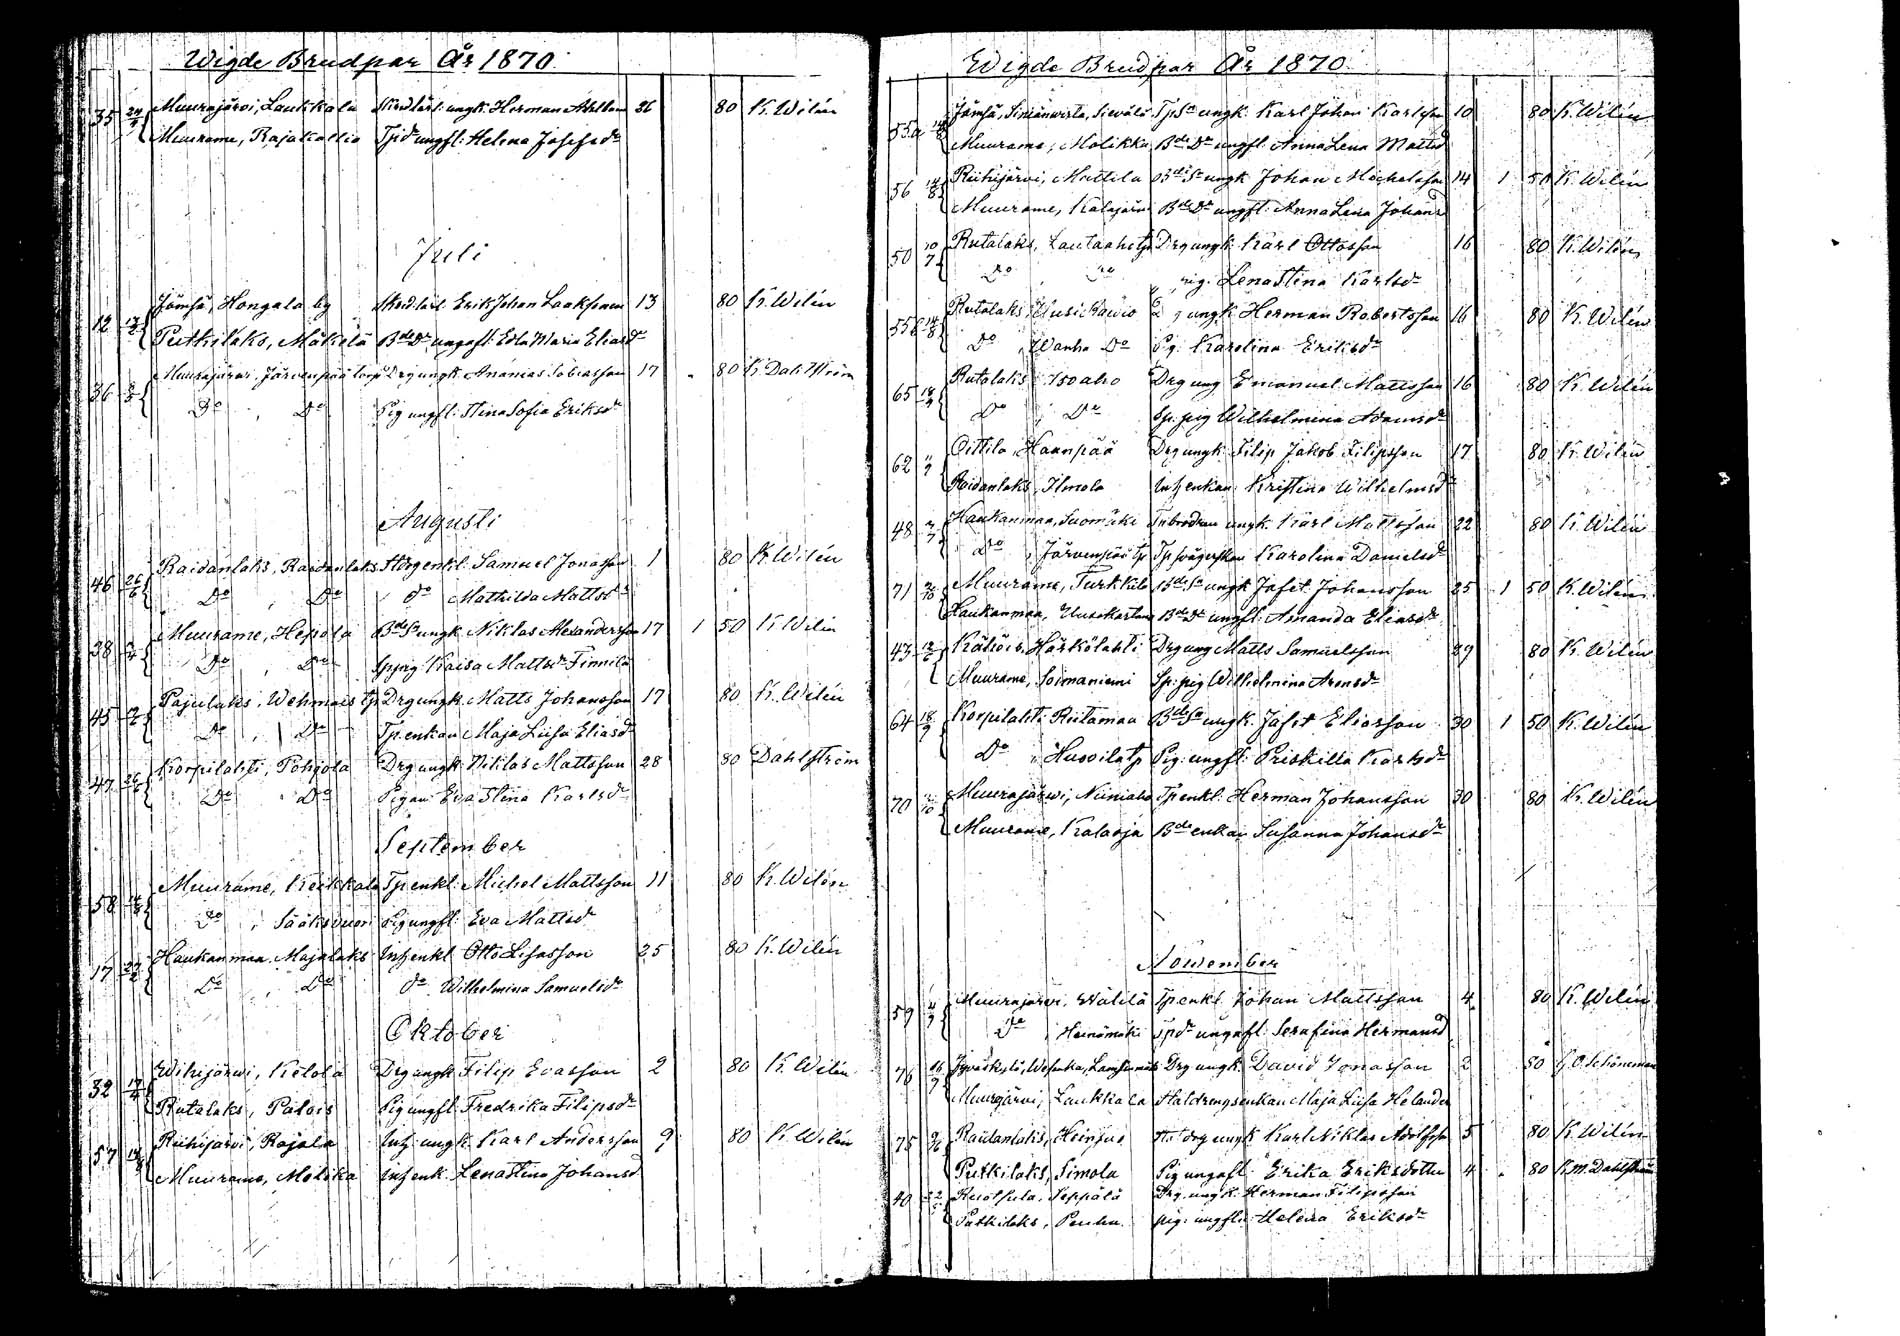 Wigde Brudpar År 1870
35 24/3 Muurajärvi, Laukkala Skredlärl. ungk. Herman 26 80 K. Wilén
Muurame, Rajakallio Tpid ungfl: Helena Josefsdr
Juli
12 13/2 Jämsä, Hongala by Skrdlärl. Erik Johan Laaksonen 13 80 K. Wilén
Putkilaks, Mäkelä Bde Dr ungafl. Edla Maria Eliasdr
36 Muurajärvi, Järvenpää torp Drg ungk. Ananias Tobiasson 17 80 K. Dahlström
Do , Do Pig ungfl: Stina Sofia Eriksdr
Augusti
46 26/6 Raidanlaks, Raidanlaks Hdrg enkl. Samuel Jonasson 1 80 K Wilén
Do , Do do Mathilda Mattsdr
38 Muurame, Hepola Bde Sn ungk. Niklas Alexandersson 17 1 50 K Wilén
Do , Do Sp pig Kaisa Mattsdr Finnilä
45 Pajulaks, Wehmais tp Drg ungk. Matts Johansson 17 80 K. Wilén
Do , Do Tp. enkan Maja Liisa Eliasd
47 26/6 Korpilahti, Pohjola Drg ungk. Niklas Mattsson 28 80 Dahlström
Do Do Pigan Eva Stina Karlsdr
September
58 14/8 Muurame, Keikkala Tp enkl. Michel Mattsson 11 80 K. Wilén
Do , Sääksvuori Pig ungfl. Eva Mattsd
17 27/2 Haukanmaa Majalaks Inh enkl Otto 25 80 K. Wilén
Do , Do do Wilhelmina Samuelsdr
Oktober
32 17/4 Wihijärwi, Ketola Drg ungk Filip Evasson 2 80 K. Wilén
Rutalaks, Palois Pig ungfl. Fredrika Filipsdr
57 14/8 Riihijärvi, Rajala Inh: ungk. Karl Andersson 9 80 K. Wilén
Muurame, Molikka Inh enk. Lena Stina Johansd
Wigde Brudpar År 1870
55a 14/8 Jämsä, Tp Sn ungk. Karl Johan Karlsson 10 80 K. Wilén
Muurame, Molikka Bde Dr ungfl. Anna Lena Mattsd
56 14/8 Riihijärvi, Mattila Bde Sn ungk Johan Michelsson 14 1 50 K. Wilén
Muurame, Kalajärvi Bde Dr ungfl. Anna Lena Johansd
50 10/7 Rutalaks, Lautaaho tp Drg ungk. Karl Ottosson 16 80 K. Wilén
Do Do pig. Lena Stina Karlsdr
55b 14/8 Rutalaks, Uusi Kaivo ungk. Herman Robertsson 16 80 K. Wilén
Do , Wanha Do Pig. Karolina Eriksdr
65 18/9 Rutalaks Isoaho Drg ung Emanuel Mattsson 16 80 K. Wilén
Do , Do Sp. pig Wilhelmina Adamsdr
62 Oittila, Haanpää Drg ungk. Filip Jakob Filipsson 17 80 K. Wilén
Raidanlaks, Ilmola Inh enkan Kristina Wilhelmsd
48 Haukanmaa, Suomäki ungk. Karl Mattsson 22 80 K. Wilén
Do , Järvenpää tp Tp svägerskan Karolina Danielsd
71 2/10 Muurame, Turkkila Bde Sn ungk. Jafet Johansson 25 1 50 K. Wilén
Haukanmaa, Bde Dr ungfl. Amanda Eliasdr
43 12/6 Kähöis, Härkölahti Drg ung Matts Samuelsson 29 80 K. Wilén
Muurame, Soimaniemi Sp. pig Wilhelmina Aronsdr
64 18/9 Korpilahti Riitamaa Bde Sn ungk. Jafet Eliasson 30 1 50 K. Wilén
Do , Huvvila tp Pig. ungfl: Priskilla Karlsdr
70 2/10 Muurajärwi, Niiniaho Tp enkl. Herman Johansson 30 80 K. Wilén
Muurame, Kalaoja Bde enkan Susanna Johansdr
November
59 4/9 Muurajärvi, Wälilä Tp enkl. Johan Mattsson 4 80 K. Wilén
Do , Heinämäki Tpdr ungafl. Serafina Hermansd
76 16/9 Jyväskylä, Wesanka, Drg ungk. David Jonasson 2 80 G. O. Schöneman
Muurajärvi, Laukkala Haldrengsenkan Maja Liisa Helander
75 9/10 Raidanlaks, Heinjus Hdrg ungk Karl Niklas Adolfsson 5 80 K. Wilén
Putkilaks, Simola Pig ungafl. Erika Eriksdotter 4 80 K. M. Dahlström
40 22/5 Ruolsula, Seppälä Drg. ungk. Herman Filipsson
Putkilaks, Penhu pig. ungfl. Helena Eriksdr